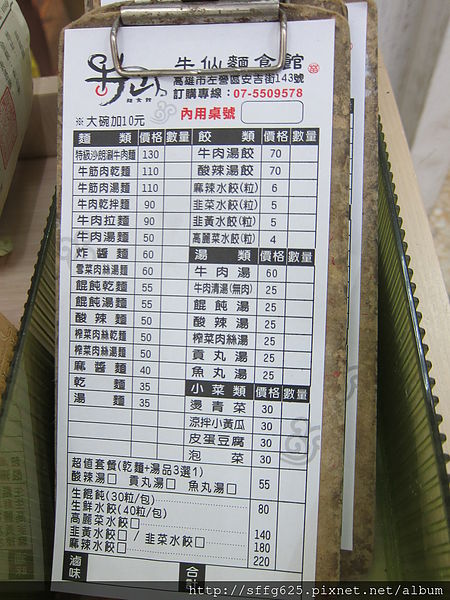 牛仙
麵食館
牛仙麵食館
高雄市左營區安吉街143號
訂購專線：07-5509578
內用桌號
※大碗加10元
麵類 價格 數量
特級沙朗涮牛肉麵 130
牛筋肉乾麵 110
牛筋肉湯麵 110
牛肉乾拌麵 90
牛肉拉麵 90
牛肉湯麵 50
炸醬麵 60
雪菜肉絲湯麵 60
餛飩乾麵 55
餛飩湯麵 55
酸辣麵 50
榨菜肉絲乾麵 50
榨菜肉絲湯麵 50
麻醬麵 40
乾麵 35
湯麵 35
餃類 價格 數量
牛肉湯餃 70
酸辣湯餃 70
麻辣水餃(粒) 6
韭菜水餃(粒) 5
韭黃水餃(粒) 5
高麗菜水餃(粒) 4
湯類 價格 數量
牛肉湯 60
牛肉清湯(無肉) 25
餛飩湯 25
酸辣湯 25
榨菜肉絲湯 25
貢丸湯 25
魚丸湯 25
小菜類 價格 數量
燙青菜 30
涼拌小黃瓜 30
皮蛋豆腐 30
泡菜 30
超值套餐(乾麵+湯品3選1)
酸辣湯□ 貢丸湯□ 魚丸湯□ 55
生餛飩(30粒/包) 80
生鮮水餃(40粒/包)
高麗菜水餃□ 140
韭黃水餃□ / 韭菜水餃□ 180
麻辣水餃□ 220
滷味
合計
http://sffg625.pixnet.net/album